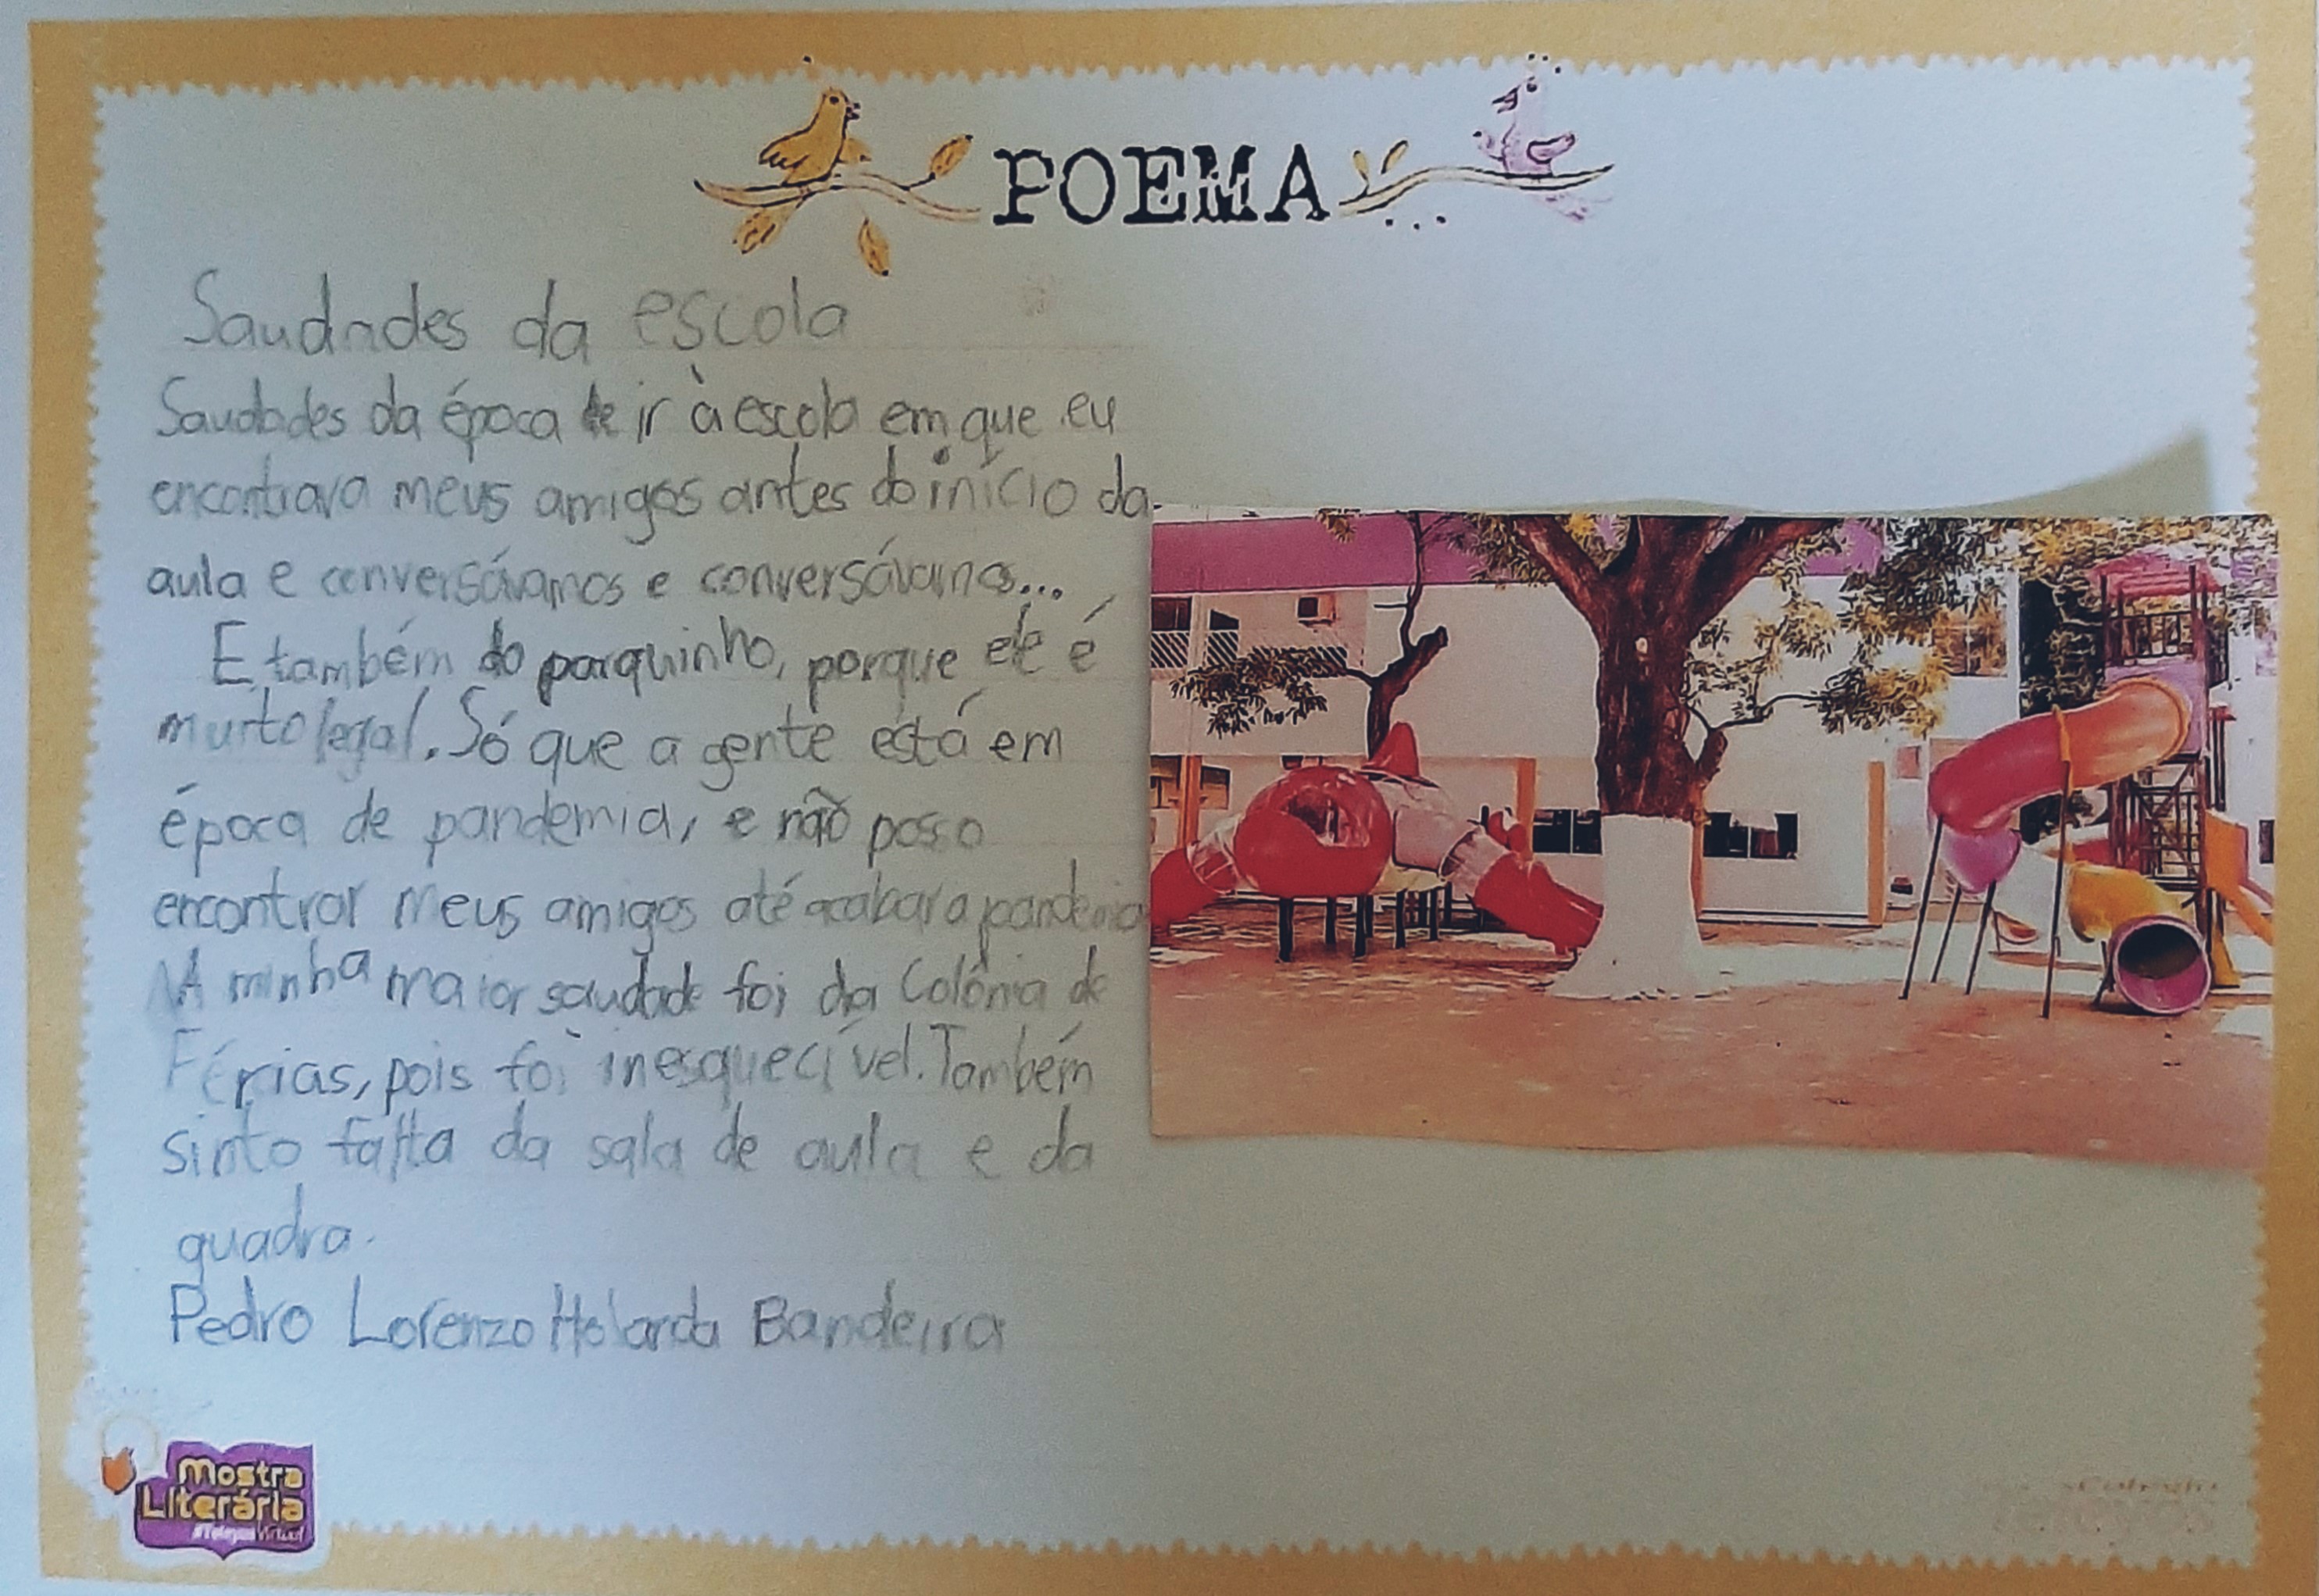 POEMA
Saudades da escola
Saudades da época de ir à escola em que eu
encontrava meus amigos antes do início da
aula e conversávamos e conversávamos...
E também do parquinho, porque ele é
muito legal. Só que a gente está em
época de pandemia, e não posso
encontrar meus amigos até acabar a pandemia
A minha maior saudade foi da Colônia de
Férias, pois foi inesquecível. Também
sinto falta da sala de aula e da
quadra.
Pedro Lorenzo Holanda Bandeira
Mostra
Literária